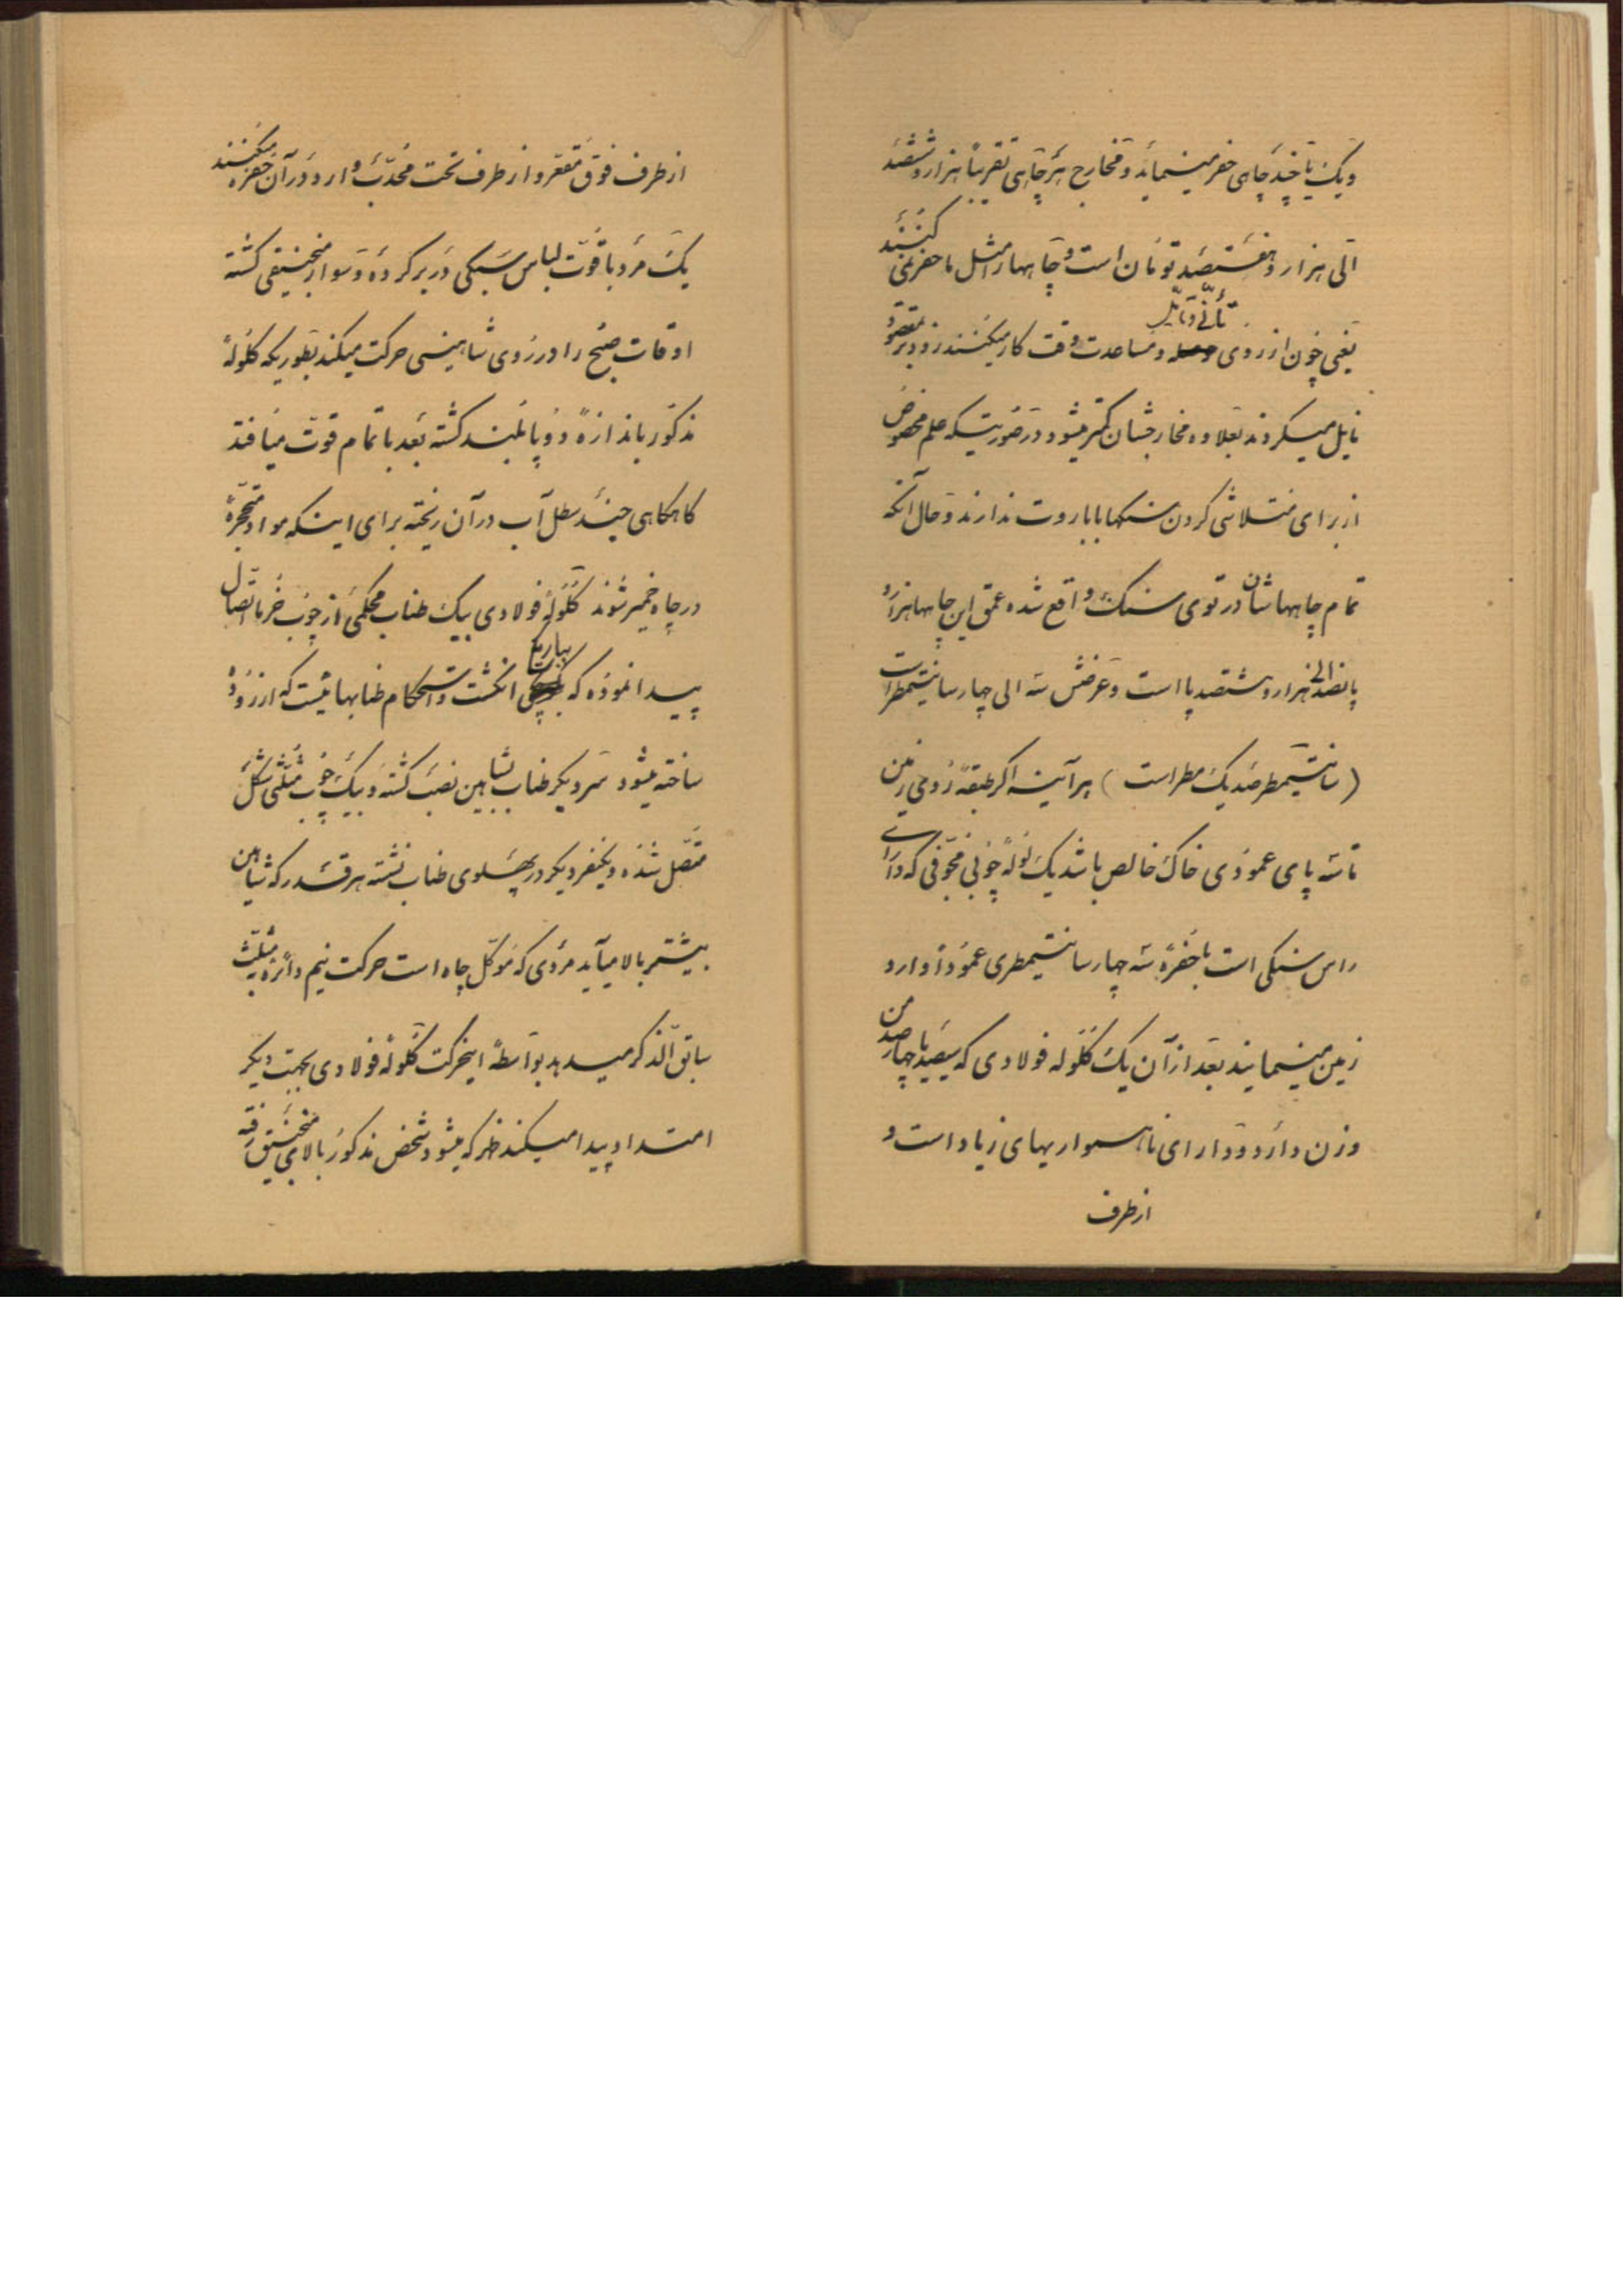 و یک یا چند چاهی حفر مینماید و مخارج هر چاهی تقریباً هزار و ششصد
الی هزار و هفتصد تومان است و چاهها را مثل ما حفر نمی کنند
یعنی چون از روی تأنّی و تأمّل و مساعدت وقت کار میکنند زودتر بمقصود
نایل میگردند بعلاوه مخارجشان کمتر میشود در صورتیکه علم مخصوص
از برای متلاشی کردن سنگها با باروت ندارند و حال آنکه
تمام چاههاشان در توی سنگ واقع شده عمق این چاهها هزار و
پانصد الی هزار و هشتصد پا است و عرضش سه الی چهار سانتیمطر است
(سانتیمطر صد یک مطر است) هر آینه اگر طبقهٔ روی زمین
تا سه پای عمودی خاک خالص باشد یک لولهٔ چوبی مجوّفی که دارای
راس سنگی است با حفرهٔ سه چهار سانتیمطری عموداً وارد
زمین مینمایند بعد از آن یک گلوله فولادی که سیصد یا چهارصد من
وزن دارد و دارای ناهمواریهای زیاد است و
از طرف
از طرف فوق مقعّر و از طرف تحت محدّب وارد در آن حفره میکنند
یک مرد با قوّت لباس سبکی در بر کرده و سوار منجنیقی گشته
اوقات صبح را در روی شاهینی حرکت میکند بطوریکه گلولهٔ
مذکور باندازهٔ دو پا بلند گشته بعد با تمام قوّت میافتد
گاهگاهی چند سطل آب در آن ریخته برای اینکه مواد متحجّرهٔ
در چاه خمیر شوند گلولهٔ فولادی بیک طناب محکمی از چوب خرما اتّصال
پیدا نموده که بباریکی انگشت و استحکام طنابهائیست که از زرود
ساخته میشود سر دیگر طناب بشاهین نصب گشته و بیک چوب مثلّثی شکل
متّصل شده و یکنفر دیگر در پهلوی طناب نشسته هر قدر که شاهین
بیشتر بالا میآید مردی که موکّل چاه است حرکت نیم دائره بمثلّث
سابق الذکر میدهد بواسطهٔ اینحرکت گلولهٔ فولادی بجهت دیگر
امتداد پیدا میکند ظهر که میشود شخص مذکور بالای منجنیق رفته